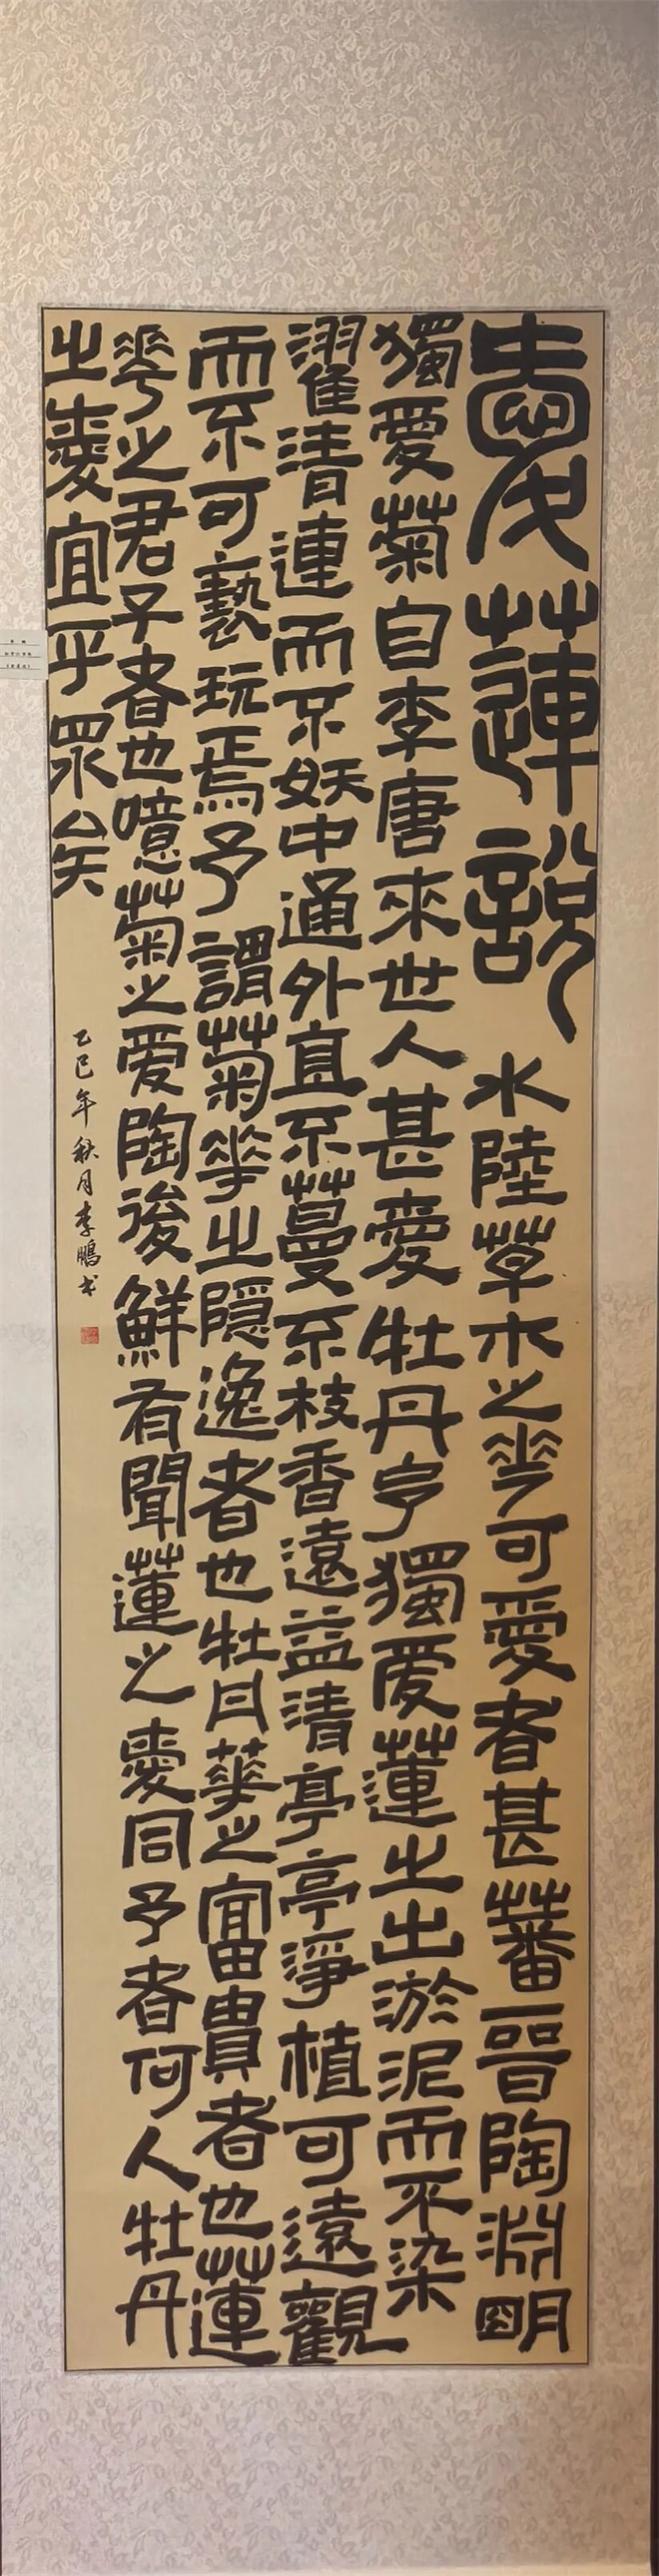 愛蓮說水陸草木之華可愛者甚蕃晉陶淵明
獨愛菊自李唐來世人甚愛牡丹予獨愛蓮之出淤泥而不染
濯清漣而不妖中通外直不蔓不枝香遠益清亭亭淨植可遠觀
而不可褻玩焉予謂菊華之隱逸者也牡丹華之富貴者也蓮
華之君子者也噫菊之愛陶後鮮有聞蓮之愛同予者何人牡丹
之愛宜乎眾矣
乙巳年秋月李鵬书